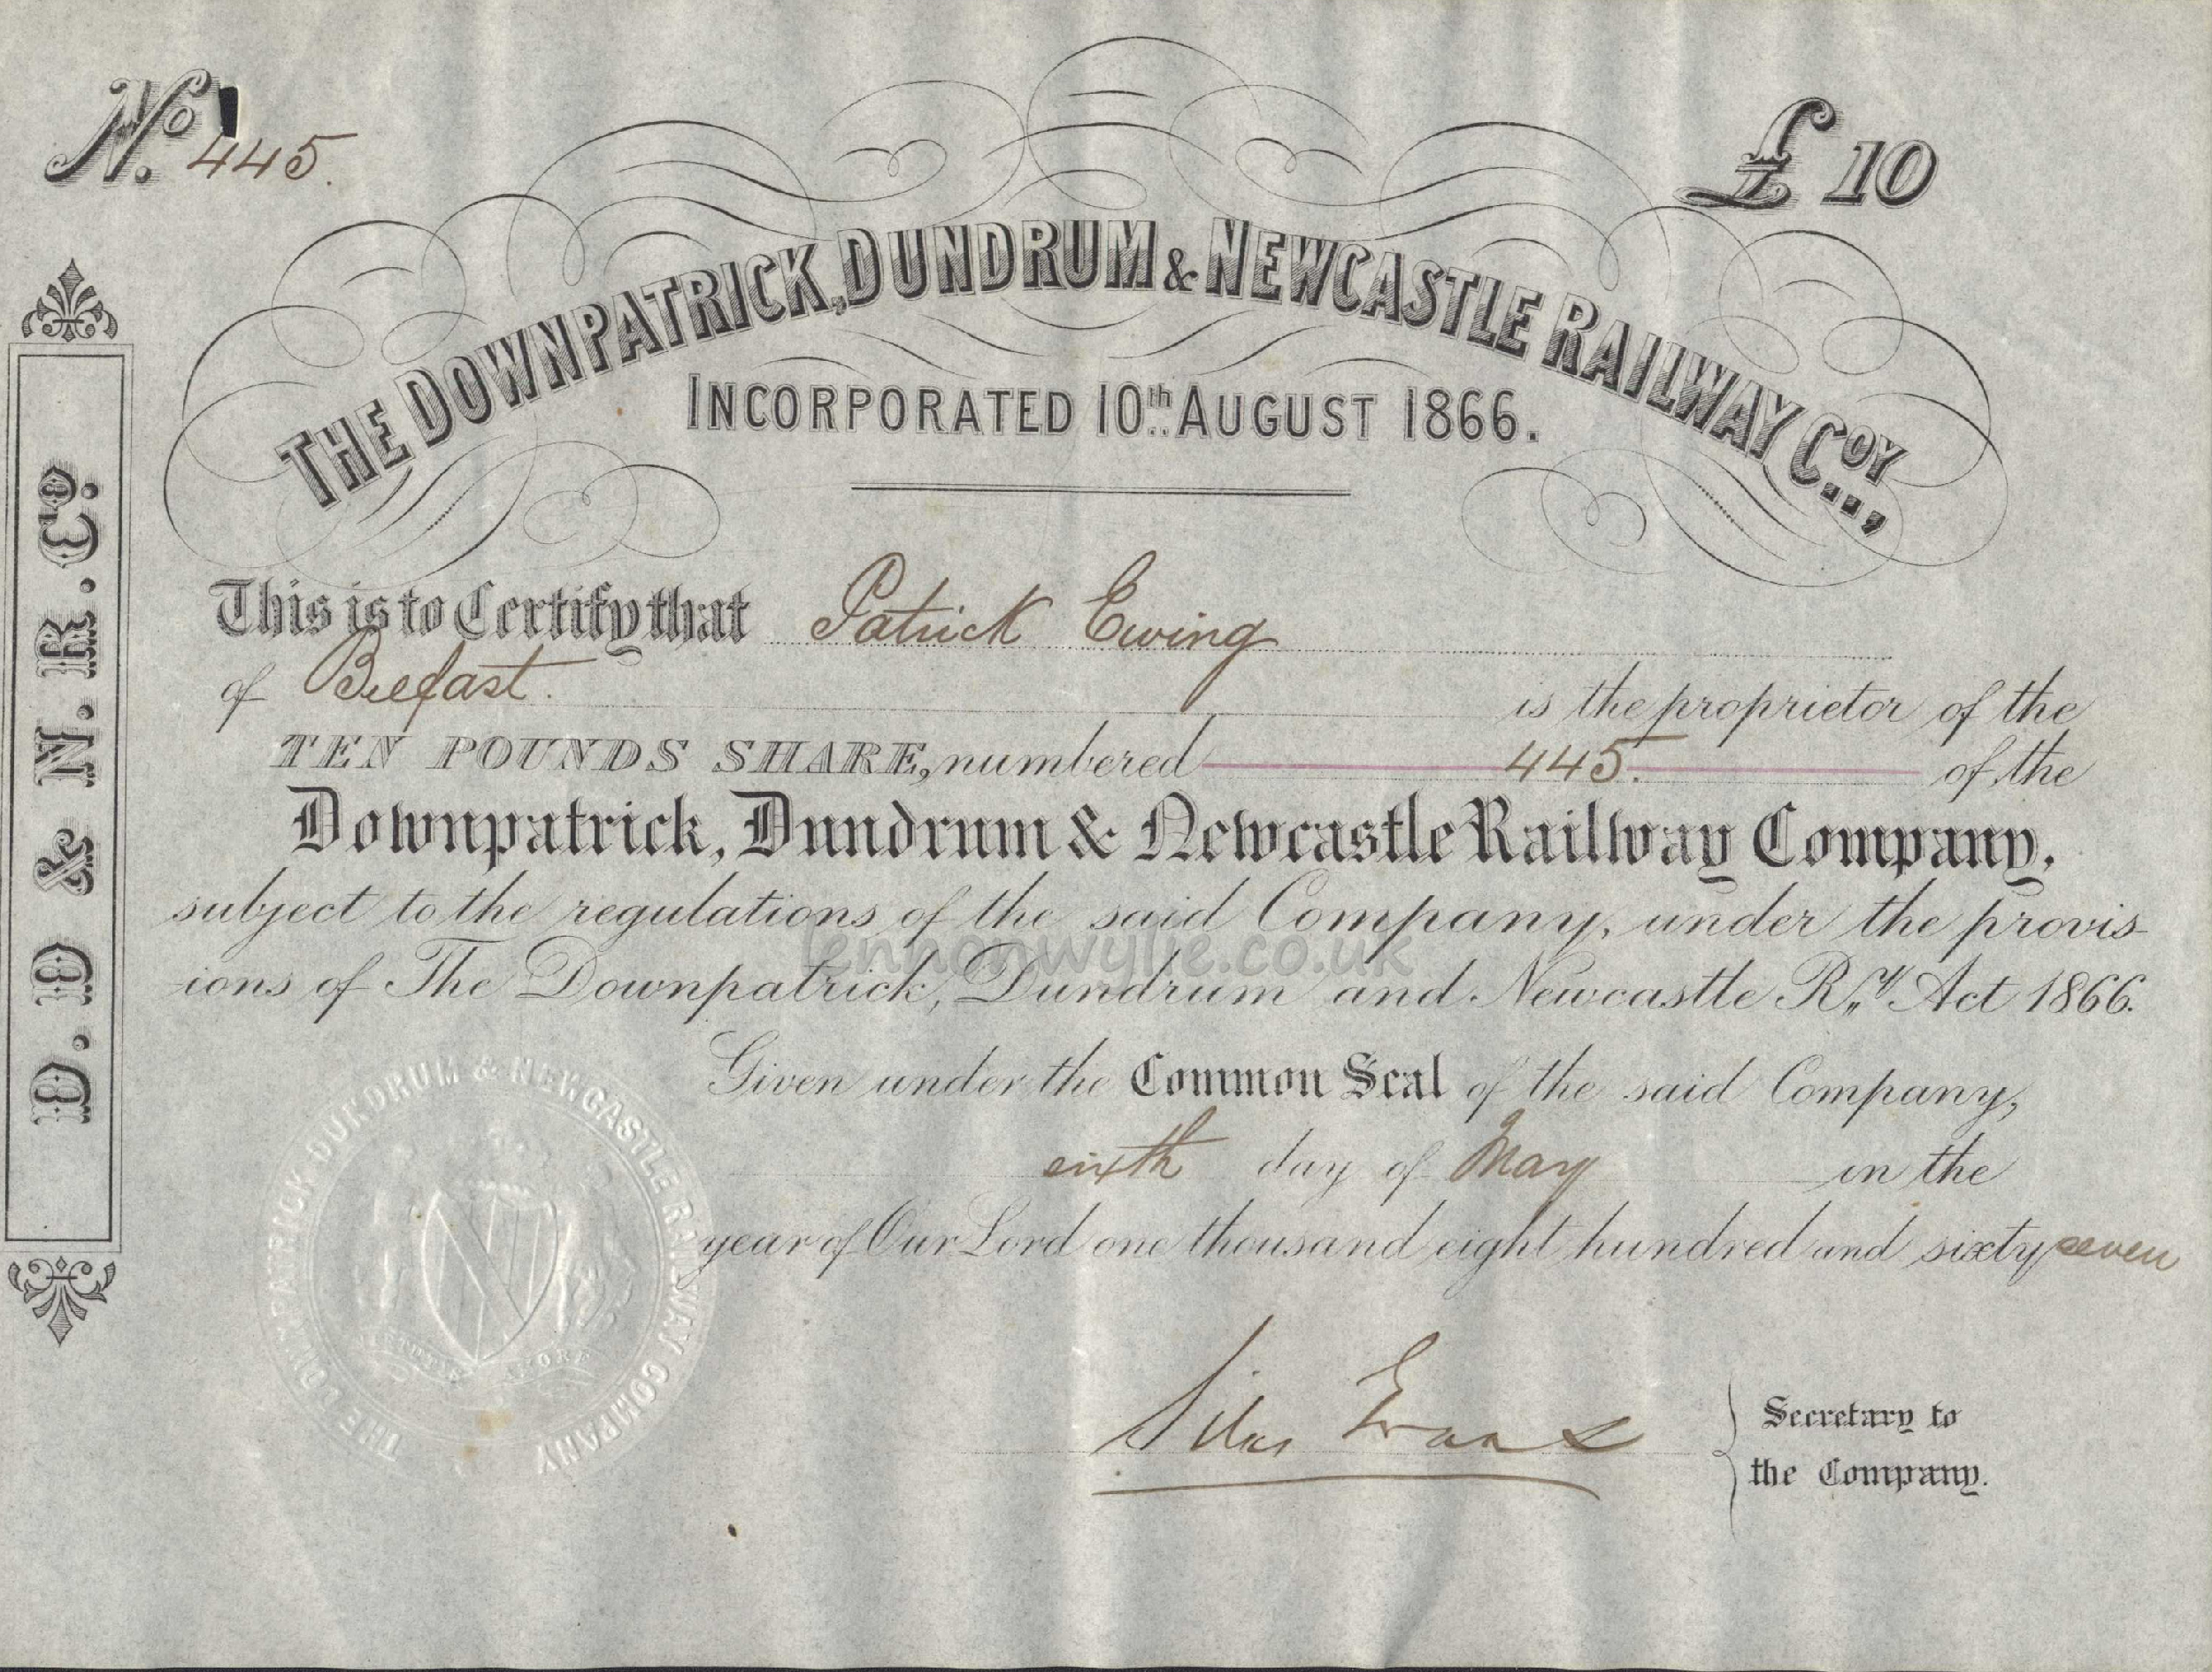 No. 445.
£10
THE DOWNPATRICK, DUNDRUM & NEWCASTLE RAILWAY COY.,
INCORPORATED 10th AUGUST 1866.
D. D & N. R. Co.
This is to Certify that Patrick Ewing
of Belfast. is the proprietor of the
TEN POUNDS SHARE, numbered 445. of the
Downpatrick, Dundrum & Newcastle Railway Company,
subject to the regulations of the said Company, under the provis-
ions of The Downpatrick, Dundrum and Newcastle Ry. Act 1866.
lennonwylie.co.uk
Given under the Common Seal of the said Company,
sixth day of May in the
year of Our Lord one thousand eight hundred and sixty seven
THE DOWNPATRICK DUNDRUM & NEWCASTLE RAILWAY COMPANY
Silas Evans
Secretary to
the Company.